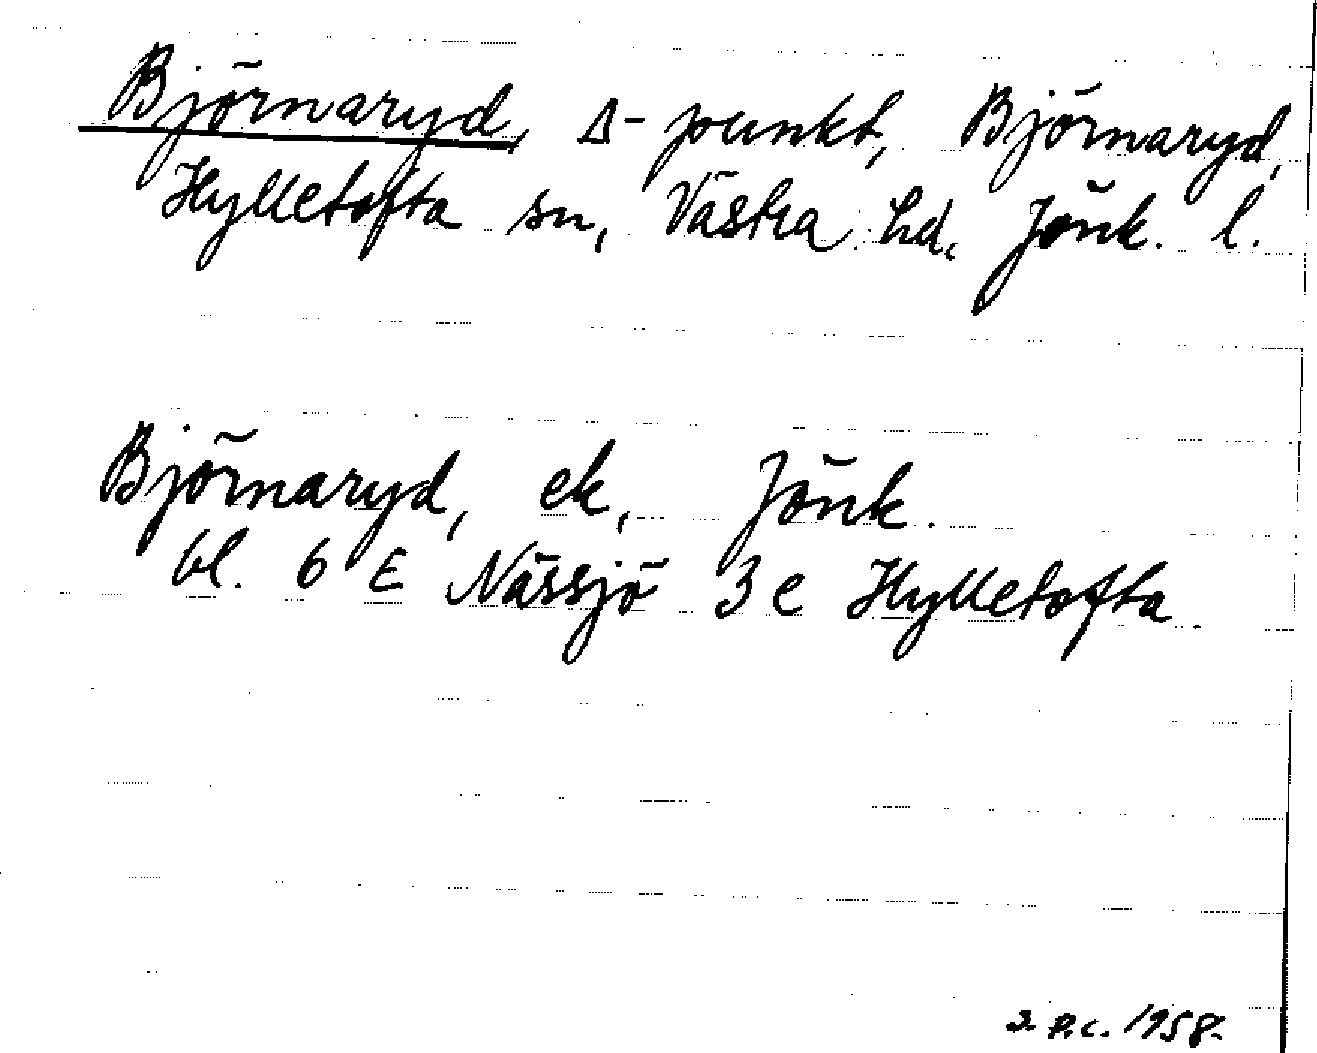 Björnaryd, Δ-punkt, Björnaryd,
Hylletofta sn, Västra hd. Jönk. l.
Björnaryd, ek, Jönk.
bl. 6 E Nässjö 3 e Hylletofta
P.C. 1958.